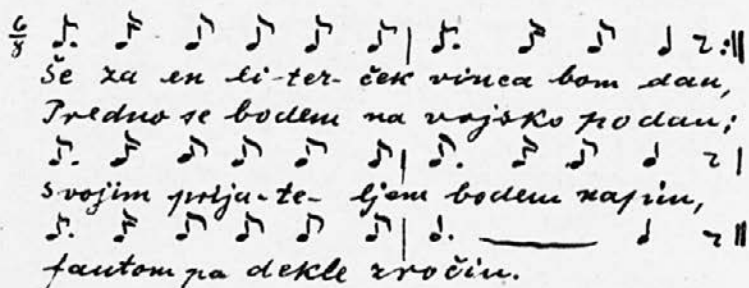 6/8
Še za en li-ter-ček vinca bom dau,
Predno se bodem na vojsko podau;
Svojim prija-te-ljem bodem napiu,
fantom pa dekle zročiu.